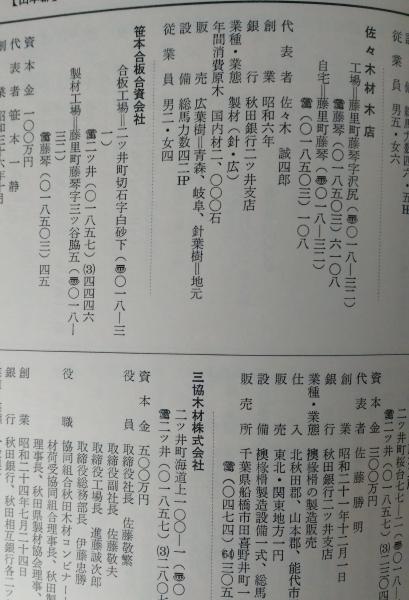 設備 総馬力数四一、五HP
従業員 男五・女六
佐々木材木店
工場＝藤里町藤琴字沢尻（〒〇一八―三二）
☎藤琴（〇一八五〇三）六一〇八
自宅＝藤里町藤琴（〒〇一八―三二）
☎（〇一八五〇三）一〇八
代表者 佐々木誠四郎
創業 昭和六年
銀行 秋田銀行二ツ井支店
業種・業態 製材（針・広）
年間消費原木 国内材二、〇〇〇石
販売 広葉樹＝青森、岐阜、針葉樹＝地元
設備 総馬力数四二HP
従業員 男二・女四
笹本合板合資会社
合板工場＝二ツ井町切石字白砂下（〒〇一八―三
一）
☎二ツ井（〇一八五七）(3)四四四六
製材工場＝藤里町藤琴字三ツ谷脇五（〒〇一八―
三二）
☎藤琴（〇一八五〇三）四五
資本金 一〇〇万円
代表者 笹本一静
創業 昭和三六年十月
二ツ井町桜台七―二（〒〇
☎二ツ井（〇一八五七）(3)三〇四
資本金 三〇〇万円
代表者 佐藤勝明
創業 昭和二十一年十二月一日
銀行 秋田銀行二ツ井支店
業種・業態 攘椽楫の製造販売
仕入 北秋田郡、山本郡、能代市
販売 東北・関東地方一円
設備 攘椽楫製造設備一式、総馬
販売所 千葉県船橋市田喜野井町一
☎（〇四七四）(64)三〇五
三協木材株式会社
二ツ井町海道上一〇〇―一（〒〇
☎二ツ井（〇一八五七）(3)二八〇
資本金 五〇〇万円
役員 取締役社長 佐藤敬繁
取締役副社長 佐藤敬夫
取締役工場長 進藤誠次郎
取締役総務部長 伊藤忠勝
役職 協同組合秋田木材コンビナー
材荷受協同組合理事長、秋田製
理事長、秋田県製材協会理事、
創業 昭和二十四年七月二十四日
銀行 秋田銀行、秋田相互銀行各二ツ